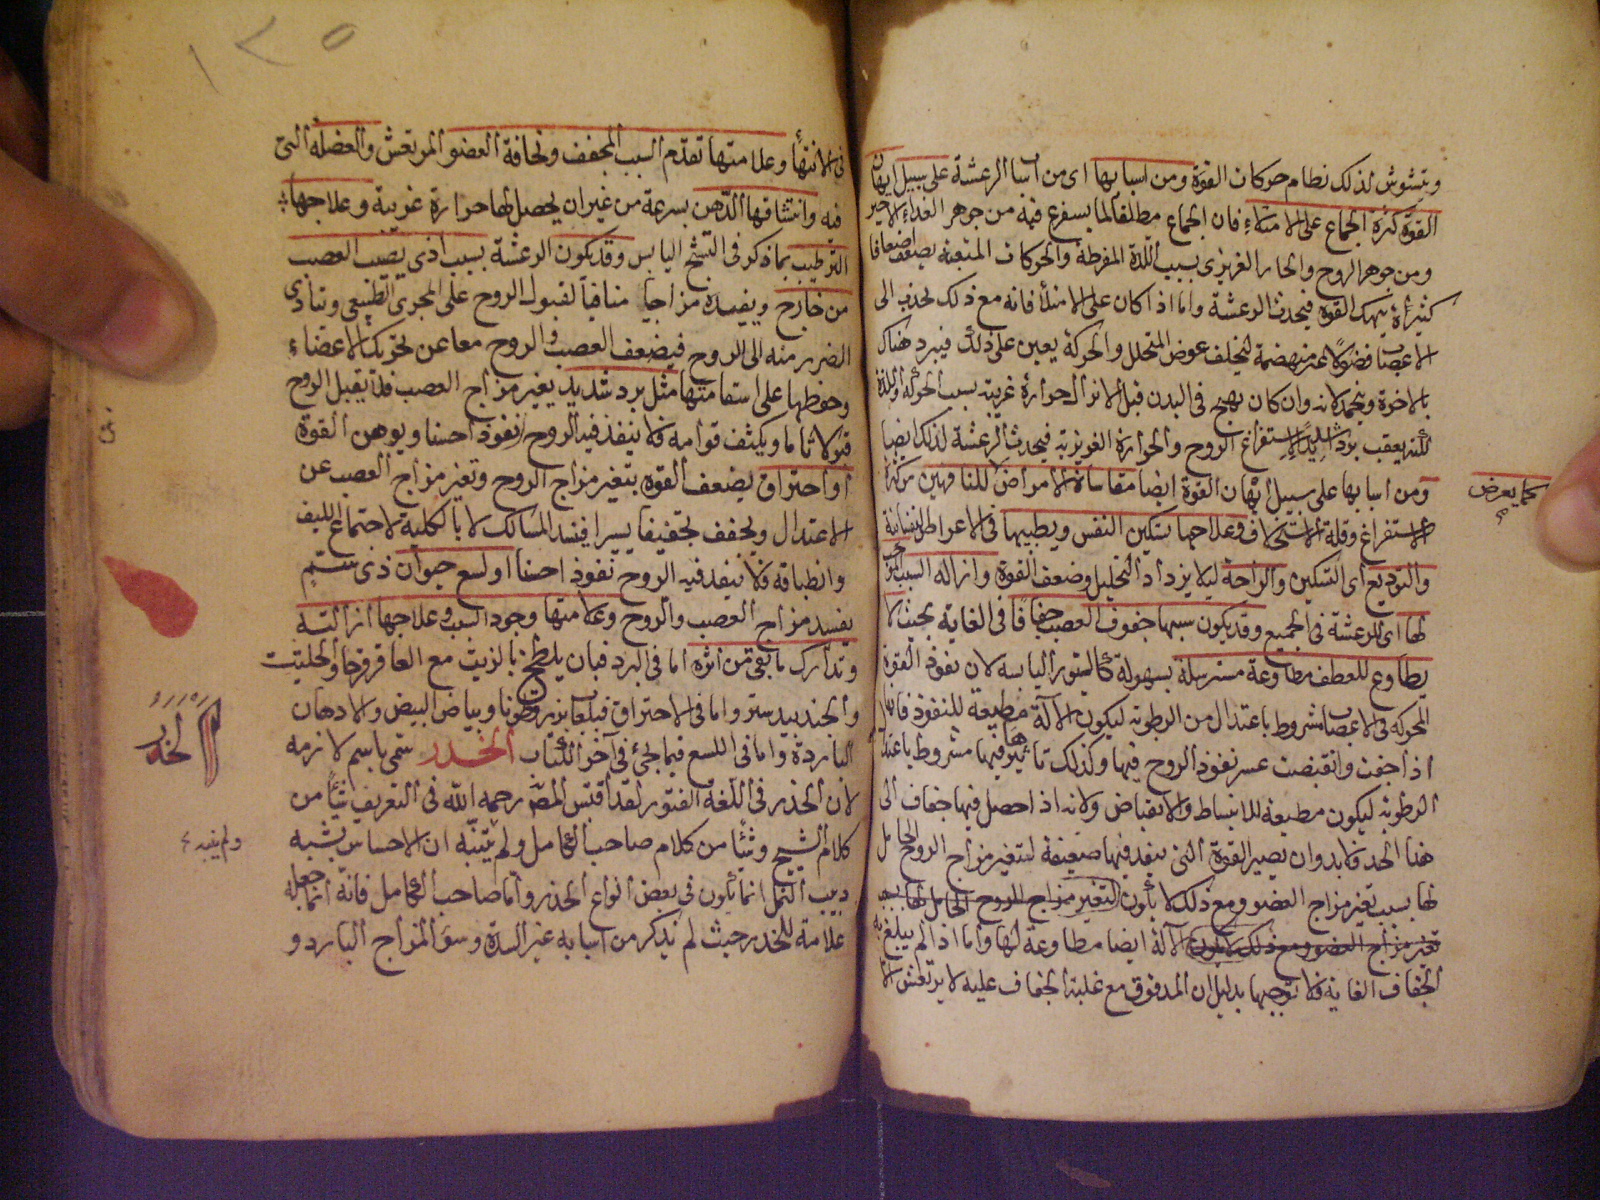 ويتشوش لذلك نظام حركات القوة ومن اسبابها اى من اسباب الرعشة على سبيل ايهان
القوة كثرة الجماع على الامتلاء فان الجماع مطلقا لما يستفرغ فيه من جوهر الغذاء الاخير
ومن جوهر الروح والحار الغريزى بسبب اللذة المفرطة والحركات المتعبة يضعف اضعافا
كثيرا وينهك القوة فيحدث الرعشة واما اذا كان على الامتلاء فانه مع ذلك يجذب الى
الاعصاب فضولا غير منهضمة ليخلف عوض المتحلل والحركة يعين على ذلك فيبرد هناك
بالاخرة ويجمد لانه وان كان يهيج فى البدن قبل الانزال حرارة غريبة بسبب الحركة واللذة
لكنه يعقب بردا لاستفراغ الروح والحرارة الغريزية فيحدث الرعشة لذلك ايضا
ومن اسبابها على سبيل ايهان القوة ايضا مقاساة الامراض للناقهين من كثرة
كما يعرض
الاستفراغ وقلة الاستخلاف وعلاجها تسكين النفس وتطييبها فى الاعراض النفسانية
والتوديع اى التسكين والراحة ليلا يزداد التحليل وضعف القوة وازالة السبب
لها اى للرعشة فى الجميع وقد يكون سببها جفوف العصب جفافا فى الغاية بحيث لا
يطاوع للعطف مطاوعة مسترسلة بسهولة كالسيور اليابسة لان نفوذ القوة
المحركة فى الاعصاب مشروط باعتدال من الرطوبة ليكون الآلة مطيعة للنفوذ فانها
اذا جفت وانقبضت عسر نفوذ الروح فيها وكذلك تاثيرها فيها مشروط باعتدال
الرطوبة ليكون مطيعة للانبساط والانقباض ولانه اذا حصل فيها جفاف الى
هذا الحد فلا بد وان يصير القوة التى ينفذ فيها ضعيفة لتغير مزاج الروح الحامل
لها بسبب تغير مزاج العضو ومع ذلك لا يكون التغير مزاج الروح الحامل لها بسبب
تغير مزاج العضو ومع ذلك لا يكون الآلة ايضا مطاوعة لها واما اذا لم يبلغ
الجفاف الغاية فلا توجبها بدليل ان المدقوق مع غلبة الجفاف عليه لا يرتعش الا
١٢٥
فى الانتهاء وعلامتها تقدم السبب المجفف ونحافة العضو المرتعش والعضلة التى
فيه وانتشافها الدهن بسرعة من غير ان يحصل لها حرارة غريبة وعلاجها
الترطيب بما ذكر فى التشنج اليابس وقد يكون الرعشة بسبب اذى يصيب العصب
من خارج ويفيده مزاجا منافيا لقبول الروح على المجرى الطبيعى ويتادى
الضرر منه الى الروح فيضعف العصب والروح معا عن تحريك الاعضاء
وحفظها على استقامتها مثل برد شديد يغير مزاج العصب فلا يقبل الروح
قبولا تاما ويكثف قوامه فلا ينفذ فيه الروح نفوذا حسنا ويوهن القوة
او احتراق يضعف القوة بتغير مزاج الروح وتغير مزاج العصب عن
الاعتدال ويجفف تجفيفا يسيرا فينسد المسالك لا بالكلية لاجتماع الليف
وانطباقه فلا ينفذ فيه الروح نفوذا حسنا او لسع حيوان ذى سم
يفسد مزاج العصب والروح وعلامتها وجود السبب وعلاجها ازالته
وتدارك ما بقى من اثره اما فى البرد فبان يطبخ بالزيت مع العاقرقرحا والحلتيت
والجندبيدستر واما فى الاحتراق فبلعاب بزرقطونا وبياض البيض والادهان
الباردة واما فى اللسع فيما يجئ فى آخر الكتاب الخدر سمى باسم لازمه
الخدر
لان الخدر فى اللغة الفتور لقد اقتبس المصنف رحمه الله فى التعريف شيئا من
كلام الشيخ وشيئا من كلام صاحب الكامل ولم يتنبه ان الاحساس بشبه
دبيب النمل انما يكون فى بعض انواع الخدر واما صاحب الكامل فانه انما جعله
علامة للخدر حيث لم يذكر من اسبابه غير السدة وسوء المزاج البارد و